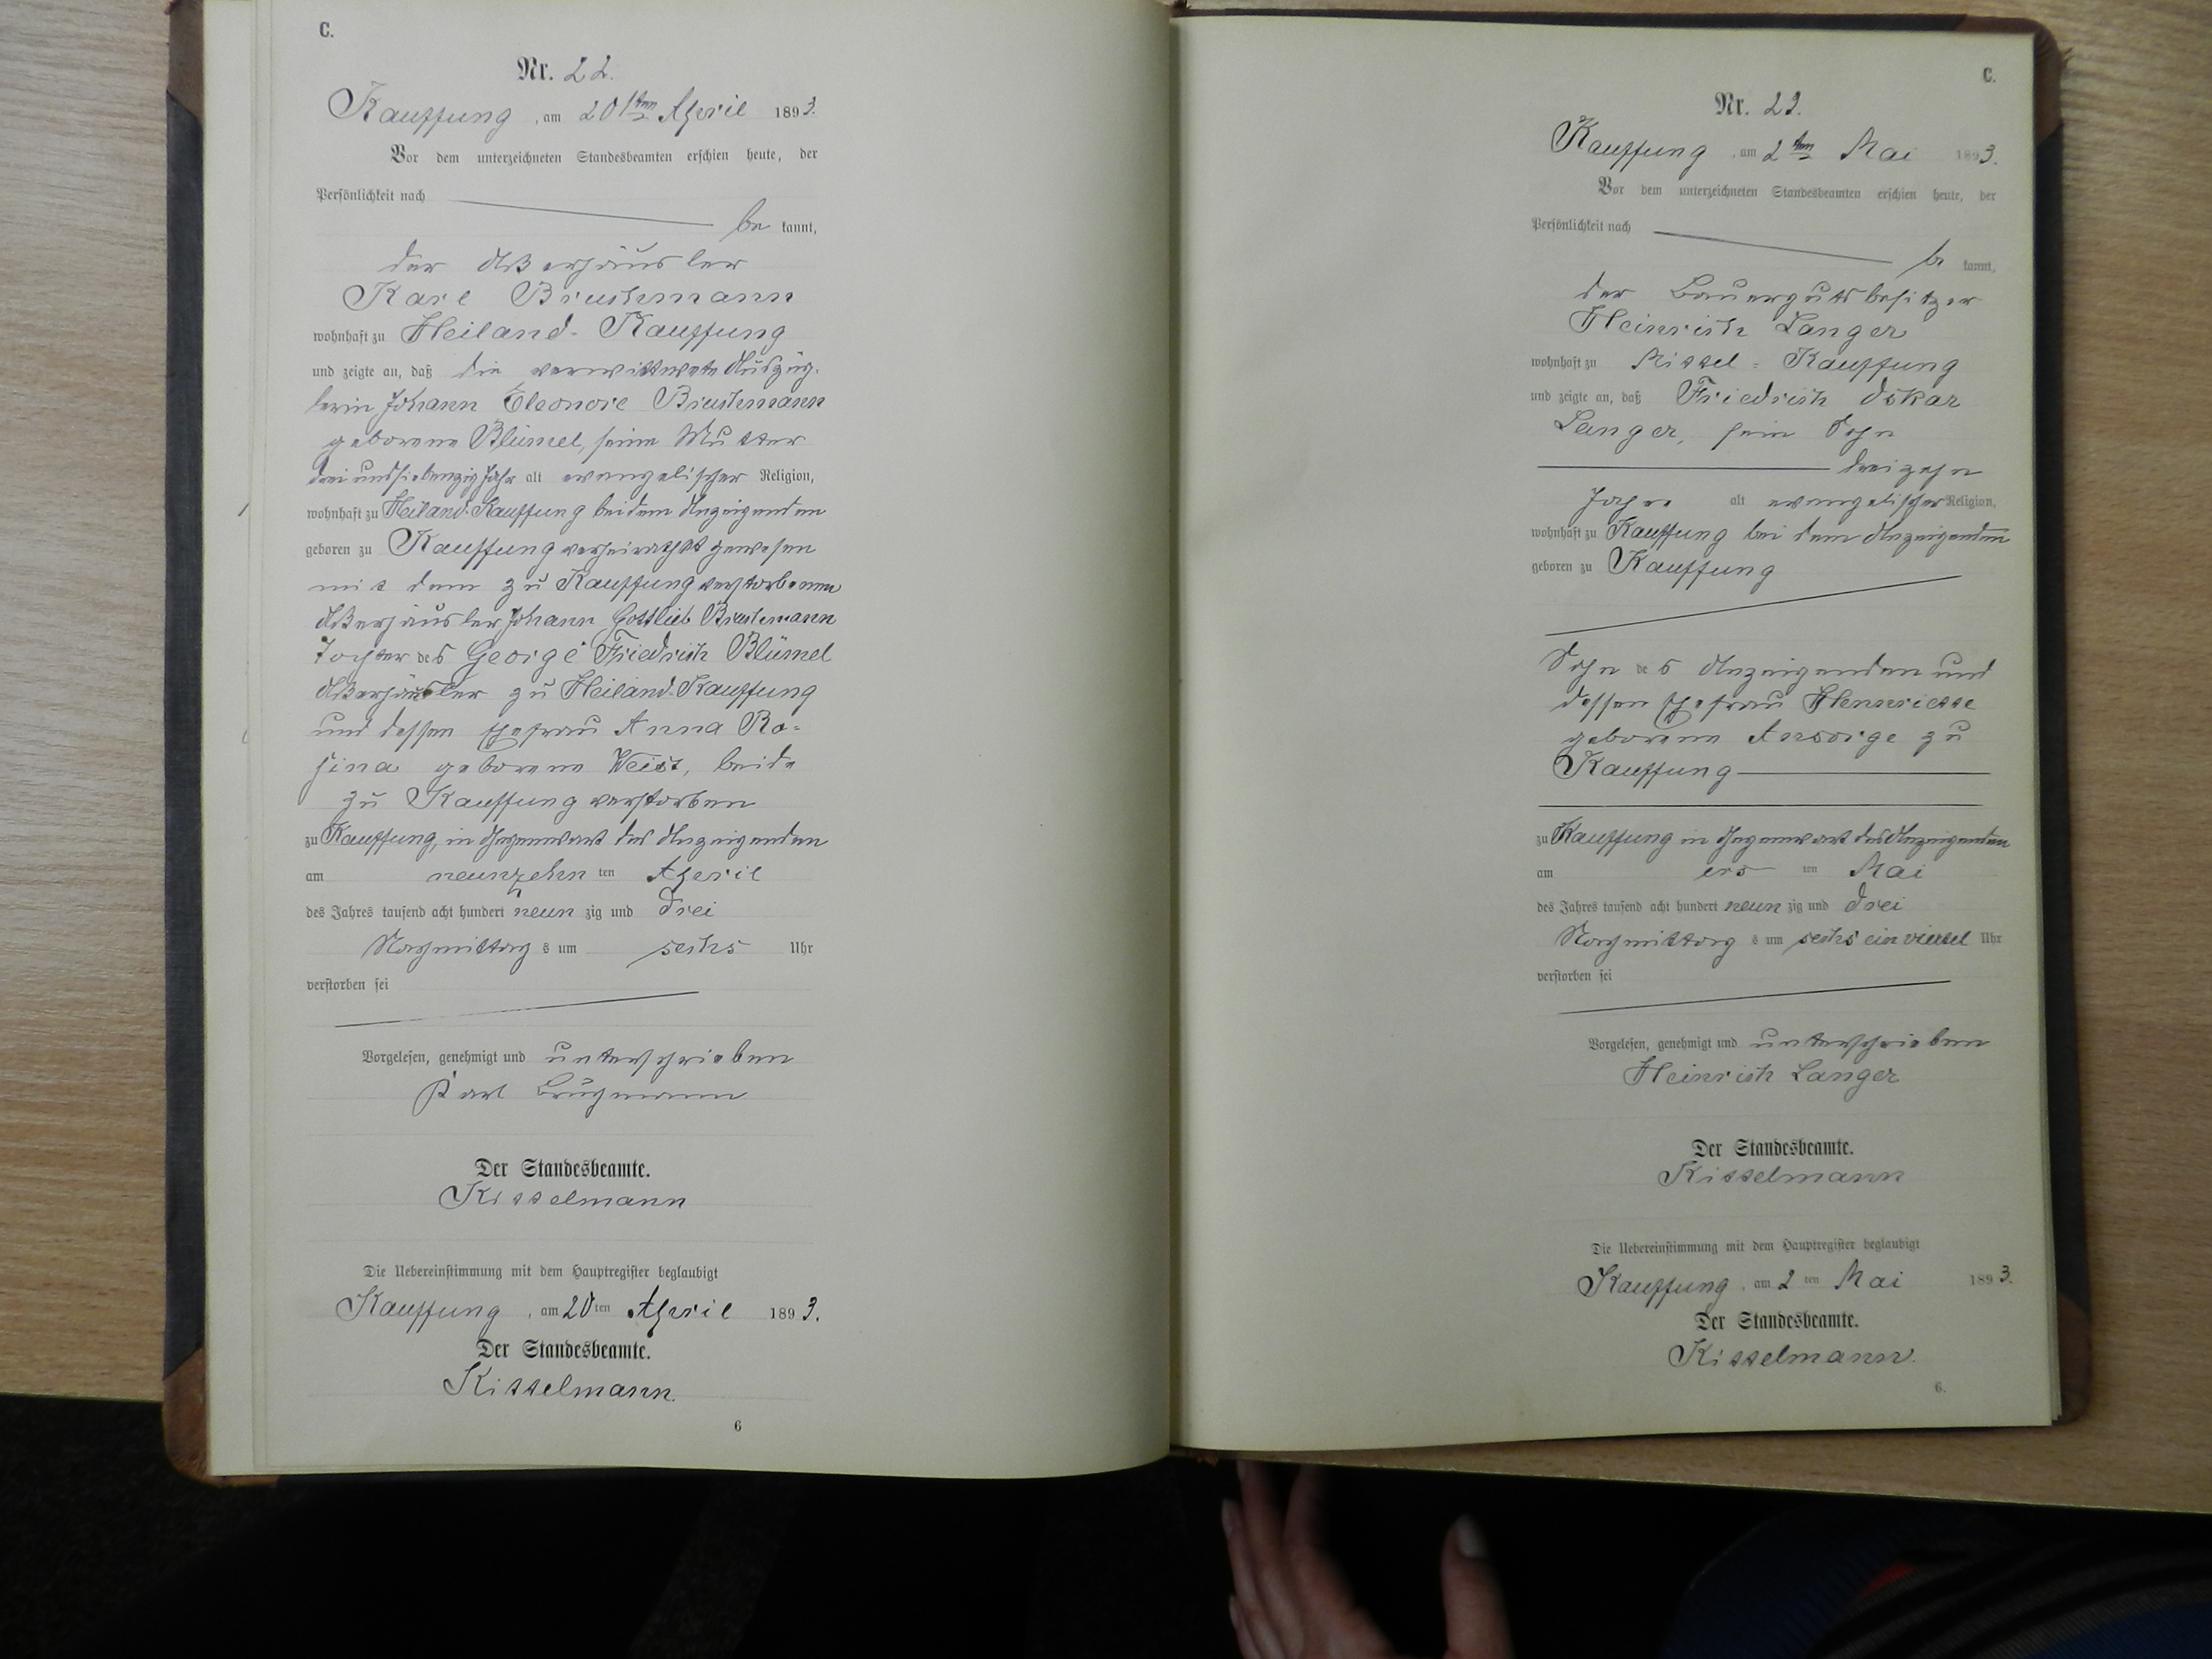 C.
Nr. 22.
Kauffung, am 20ten April 1893.
Vor dem unterzeichneten Standesbeamten erschien heute, der
Persönlichkeit nach
be kannt,
der
Karl Bruchmann
wohnhaft zu Heiland-Kauffung
und zeigte an, daß die verwittwete Auszüg-
lerin Johann Eleonore Bruchmann
geborene Blümel, seine Mutter
drei und siebenzig Jahr alt evangelischer Religion,
wohnhaft zu Heiland-Kauffung bei dem Anzeigenden
geboren zu Kauffung verheirathet gewesen
mit dem zu Kauffung verstorbenen
Johann Gottlieb Bruchmann
Tochter des George Friedrich Blümel
zu Heiland-Kauffung
und dessen Ehefrau Anna Ro-
sina geborene Weist, beide
zu Kauffung verstorben
zu Kauffung, in Gegenwart des Anzeigenden
am neunzehn ten April
des Jahres tausend acht hundert neun zig und drei
Nachmittag s um sechs Uhr
verstorben sei
Vorgelesen, genehmigt und unterschrieben
Karl Bruchmann
Der Standesbeamte.
Kisselmann
Die Uebereinstimmung mit dem Hauptregister beglaubigt
Kauffung, am 20ten April 1893.
Der Standesbeamte.
Kisselmann.
6
C.
Nr. 23.
Kauffung, am 2ten Mai 1893.
Vor dem unterzeichneten Standesbeamten erschien heute, der
Persönlichkeit nach
be kannt,
der Bauergutsbesitzer
Heinrich Langer
wohnhaft zu Kauffung
und zeigte an, daß Friedrich Oskar
Langer, sein Sohn
dreizehn
Jahre alt evangelischer Religion,
wohnhaft zu Kauffung bei dem Anzeigenden
geboren zu Kauffung
Sohn des Anzeigenden und
dessen Ehefrau Henriette
geborene Ansorge zu
Kauffung
zu Kauffung in Gegenwart des Anzeigenden
am ers ten Mai
des Jahres tausend acht hundert neun zig und drei
Nachmittag s um sechs ein viertel Uhr
verstorben sei
Vorgelesen, genehmigt und unterschrieben
Heinrich Langer
Der Standesbeamte.
Kisselmann
Die Uebereinstimmung mit dem Hauptregister beglaubigt
Kauffung, am 2ten Mai 1893.
Der Standesbeamte.
Kisselmann.
6.